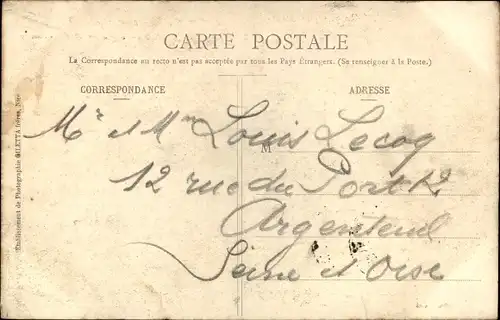 CARTE POSTALE
La Correspondance au recto n'est pas acceptée par tous les Pays Étrangers. (Se renseigner à la Poste.)
CORRESPONDANCE
ADRESSE
Mr et Mme Louis Lecoq
M
12 rue du Port 12
Argenteuil
Seine et Oise
Etablissement de Photographie GILETTA frères, Nice